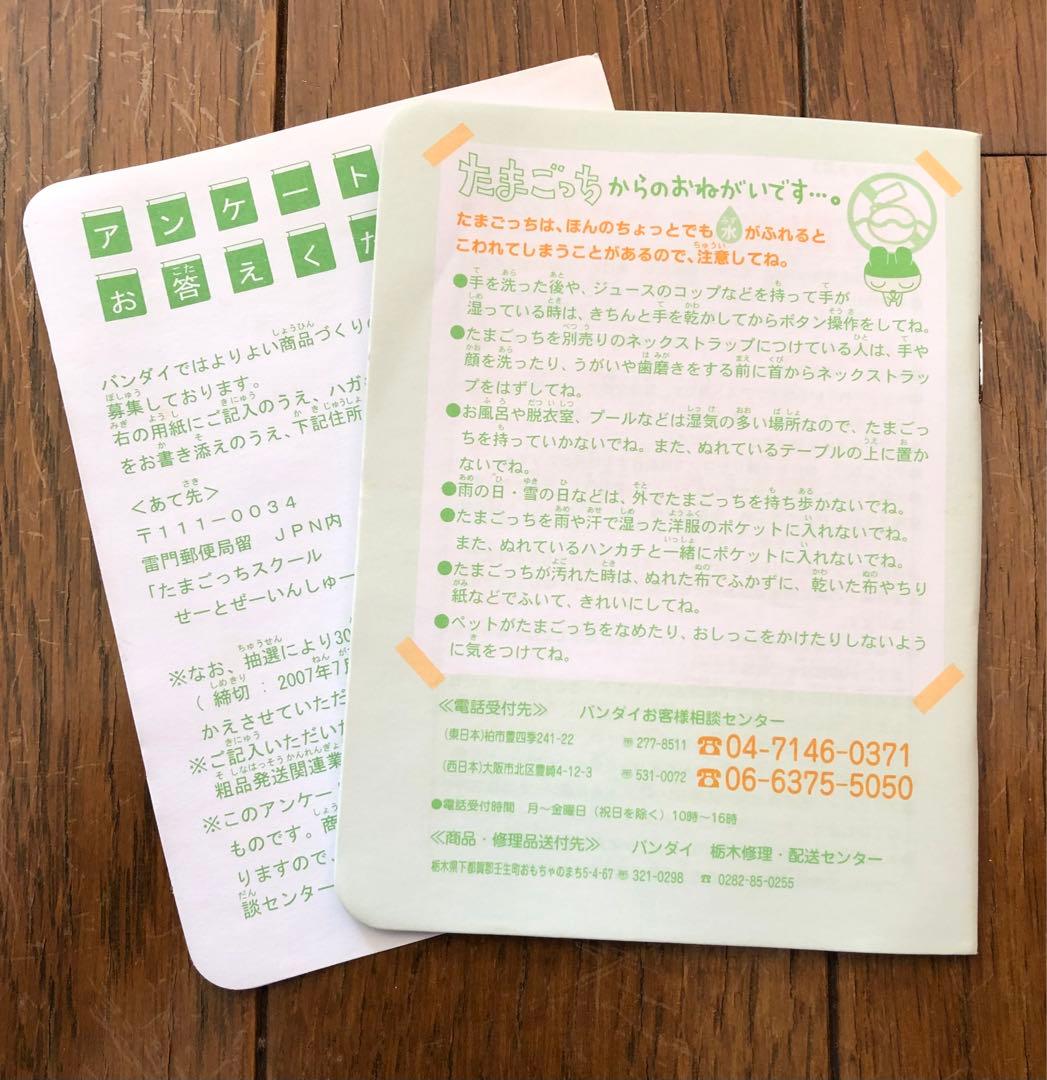 アンケート
お答えくだ
バンダイではよりよい商品づくりの
募集しております。
右の用紙にご記入のうえ、ハガ
をお書き添えのうえ、下記住所
＜あて先＞
〒111－0034
雷門郵便局留　JPN内
「たまごっちスクール
せーとぜーいんしゅー
※なお、抽選により30
（締切：2007年7月
かえさせていただ
※ご記入いただいた
粗品発送関連業
※このアンケー
ものです。商
りますので、
談センター
たまごっちからのおねがいです…。
たまごっちは、ほんのちょっとでも水がふれると
こわれてしまうことがあるので、注意してね。
●手を洗った後や、ジュースのコップなどを持って手が
湿っている時は、きちんと手を乾かしてからボタン操作をしてね。
●たまごっちを別売りのネックストラップにつけている人は、手や
顔を洗ったり、うがいや歯磨きをする前に首からネックストラッ
プをはずしてね。
●お風呂や脱衣室、プールなどは湿気の多い場所なので、たまごっ
ちを持っていかないでね。また、ぬれているテーブルの上に置か
ないでね。
●雨の日・雪の日などは、外でたまごっちを持ち歩かないでね。
●たまごっちを雨や汗で湿った洋服のポケットに入れないでね。
また、ぬれているハンカチと一緒にポケットに入れないでね。
●たまごっちが汚れた時は、ぬれた布でふかずに、乾いた布やちり
紙などでふいて、きれいにしてね。
●ペットがたまごっちをなめたり、おしっこをかけたりしないよう
に気をつけてね。
≪電話受付先≫　バンダイお客様相談センター
(東日本)柏市豊四季241-22　〒277-8511　☎04-7146-0371
(西日本)大阪市北区豊崎4-12-3　〒531-0072　☎06-6375-5050
●電話受付時間　月～金曜日（祝日を除く）10時～16時
≪商品・修理品送付先≫　バンダイ　栃木修理・配送センター
栃木県下都賀郡壬生町おもちゃのまち5-4-67 〒321-0298　☎ 0282-85-0255